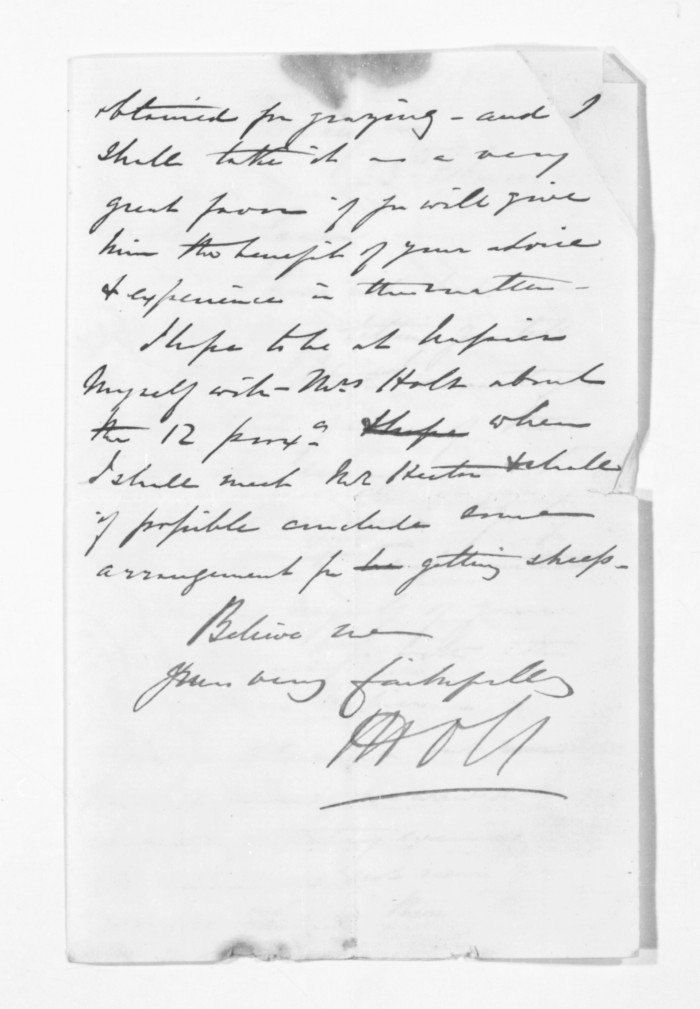 obtained for grazing - and I
shall take it as a very
great favor if you will give
him the benefit of your advice
& experience in the matter -
I hope to be at Napier
Myself with Mrs Holt about
the 12 proxo I hope when
I shall meet Mr & shall
if possible conclude some
arrangement for be getting sheep -
Believe me
Yours very faithfully
Holt